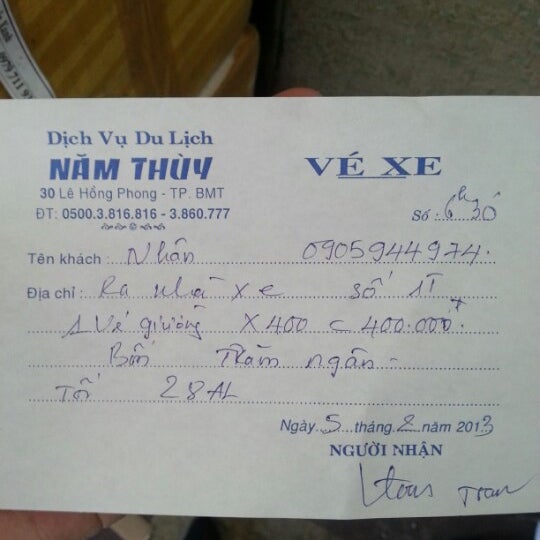 0979 711 9
Dịch Vụ Du Lịch
NĂM THÙY
30 Lê Hồng Phong - TP. BMT
ĐT: 0500.3.816.816 - 3.860.777
VÉ XE
Số: 6h30
Tên khách: Nhân 0905944974.
Địa chỉ: Ra nhà xe số 1T
1 Vé giường X400 = 400.000đ
Bốn Trăm ngàn -
Tối 28AL
Ngày 5 tháng 2 năm 2013
NGƯỜI NHẬN
Tran